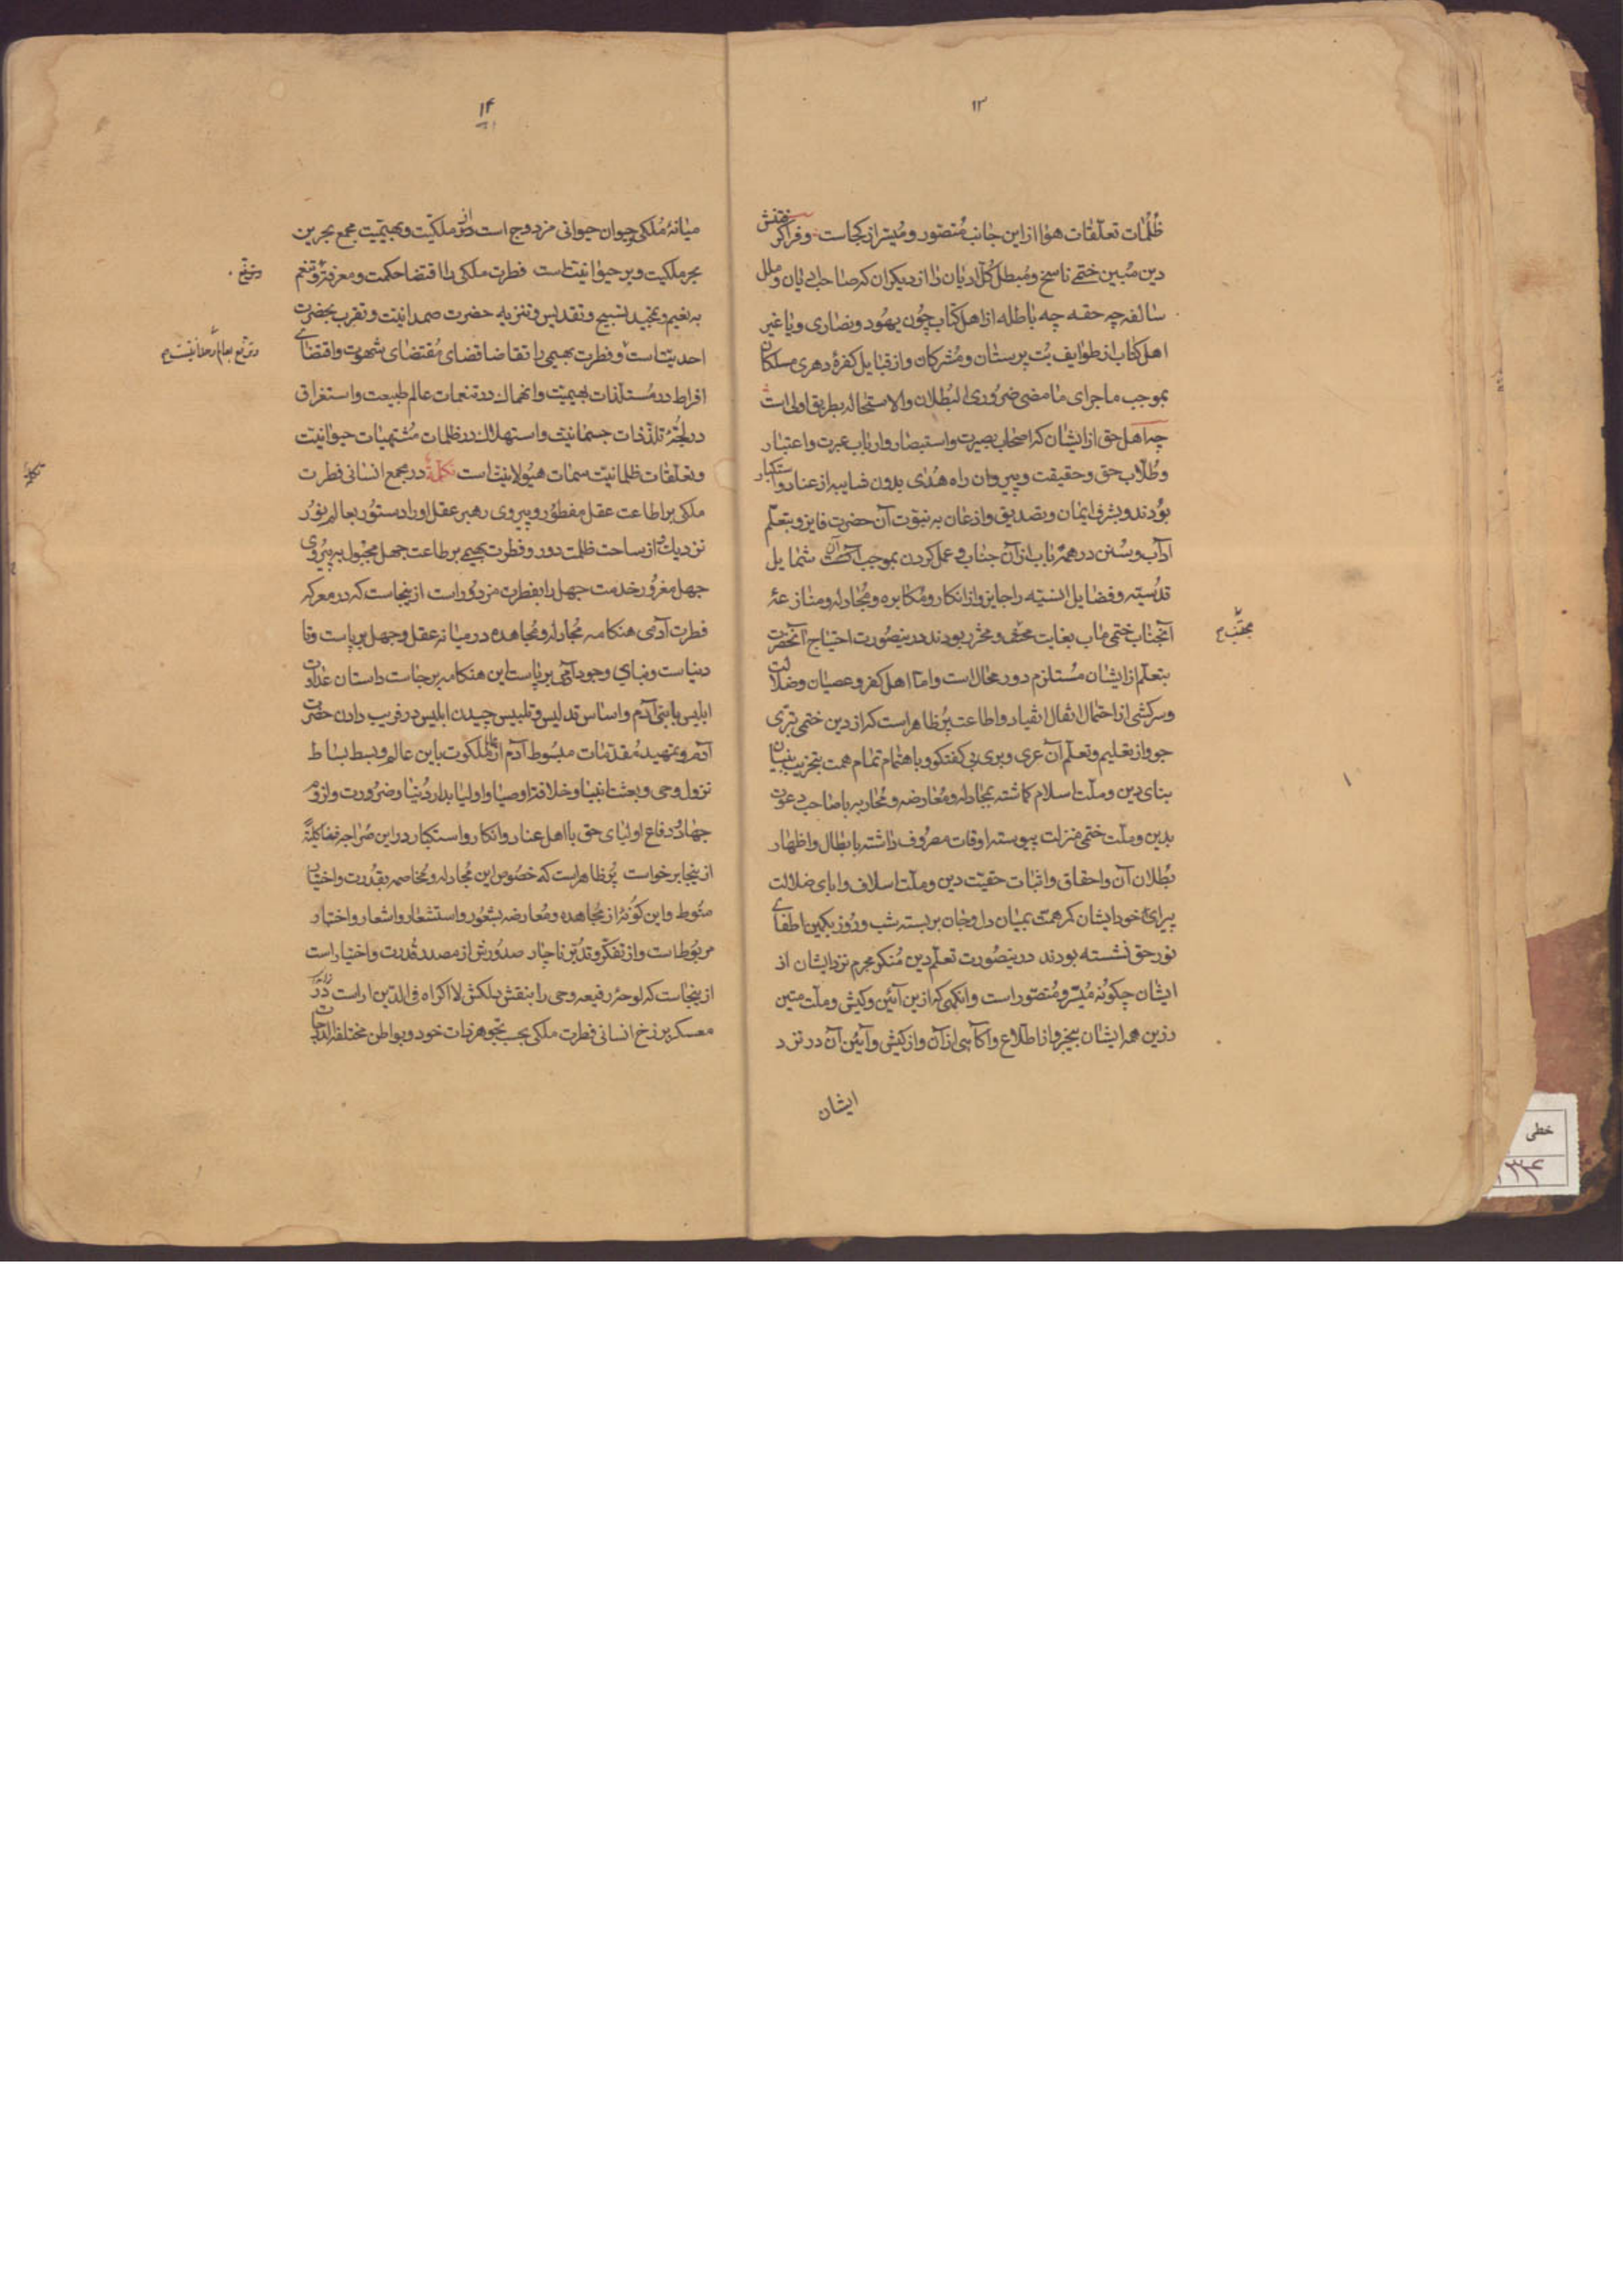 ۱۳
ظلمات تعلقات هوا از این جانب متصور و میسر از کجاست و فرا گرفتنش
دین مبین ختمی ناسخ و مبطل کل ادیان را از دیکران که صاحب ادیان و ملل
سالفه چه حقه چه باطله از اهل کتاب چون یهود و نصاری و یا غیر
اهل کتاب از طوایف بت پرستان و مشرکان و از قبایل کفرهٔ دهری مسلکان
بموجب ماجرای ما مضی ضروری البطلان والاستحاله بطریق اولی است
چه اهل حق از ایشان که اصحاب بصیرت و استبصار و ارباب عبرت و اعتبار
و طلاب حق و حقیقت و پیروان راه هدی بدون شایبه از عناد و استکبار
بودند و بشرف ایمان و تصدیق و اذعان به نبوت آن حضرت فایز و بتعلم
آداب و سنن در همه باب از آن جناب و عمل کردن بموجب آن شمایل
قدسیه و فضایل انسیه را جایز و از انکار و مکابره و مجادله و منازعهٔ
آنجناب ختمی مآب بغایت و محترز بودند در ینصورت احتیاج آنحضرت
مجتنب
بتعلم از ایشان مستلزم دور محال است و اما اهل کفر و عصیان و ضلالت
و سرکشی از احتمال اثقال انقیاد و اطاعت پر ظاهر است که از دین ختمی تبری
جو و از تعلیم و تعلم آن عری و بری بی کفتکو و با هتمام تمام همت بتخریب بنیان
بنای دین و ملت اسلام کماشته بمجادله و معارضه و محاربه با صاحب دعوت
بدین و ملت ختمی منزلت پیوسته اوقات مصروف داشته با بطال و اظهار
بطلان آن و احقاق و اثبات حقیت دین و ملت اسلاف و ابای ضلالت
پیرای خود ایشان کمر همت بمیان دل و جان بر بسته شب و روز بکمین اطفای
نور حق نشسته بودند در ینصورت تعلم دین منکر مجرم نزد ایشان از
ایشان چکونه میسر و متصور است و انکهی که از ین آئین و کیش و ملت متین
رزین همه ایشان بیخبر و از اطلاع و آکاهی از آن و از کیش و آئین آن در نزد
ایشان
۱۴
میانهٔ ملکی و حیوانی مزدوج است و از ملکیت و بهیمیت مجمع بحرین
بحر ملکیت و بر حیوانیت است فطرت ملکی را اقتضا حکمت و معرفت و تنعم
به نعیم و تمجید تسبیح و تقدیس و تنزیه حضرت صمدانیت و تقرب بحضرت
احدیت است و فطرت بهیمی را تقاضا قضای مقتضای شهوت و اقتضای
افراط در مستلذات بهیمیت و انهماك در تنعمات عالم طبیعت و استغراق
در لجهٔ تلذذات جسمانیت و استهلاك در ظلمات مشتهیات حیوانیت
و تعلقات ظلمانیت سمات هیولانیت است تکملة در مجمع انسانی فطرت
تکملة
ملکی بر اطاعت عقل مفطور و پیروی رهبر عقل او را دستور بعالم نور
نزدیك و از ساحت ظلمت دور و فطرت بهیمی بر طاعت جهل مجبول به پیروی
جهل مغرور خدمت جهل را بفطرت مزدور است از ینجاست که در معرکه
فطرت آدمی هنکامه مجادله و مجاهده در میانه عقل و جهل بر پاست و تا
دنیاست و بنای وجود آدمی بر پاست این هنکامه بر جاست داستان عداوت
ابلیس با بنی آدم و اساس تدلیس و تلبیس چیدن ابلیس در فریب دادن حضرت
آدم و تمهید مقدمات مبسوط آدم از ملکوت باین عالم و بسط بساط
نزول وحی و بعثت انبیا و خلافت اوصیا و اولیا بدار دنیا و ضرورت و لزوم
جهاد و دفاع اولیای حق با اهل عناد و انکار و استکبار در این
از ینجا بر خواست پر ظاهر است که خصوص این مجادله و مخاصمه بقدرت و اختیار
منوط و این کونه از مجاهده و معارضه بشعور و استشعار و اشعار و اختیار
مربوط است و از تفکر و تدبر ناچار صدورش از مصدر قدرت و اختیار است
از ینجاست که لوحهٔ رفیعه وحی را بنقش دلکش لا اکراه فی الدین اراست در
معسکر برزخ انسانی فطرت ملکی بحسب تجوهر ذات خود و بواطن مختلفة
خطی